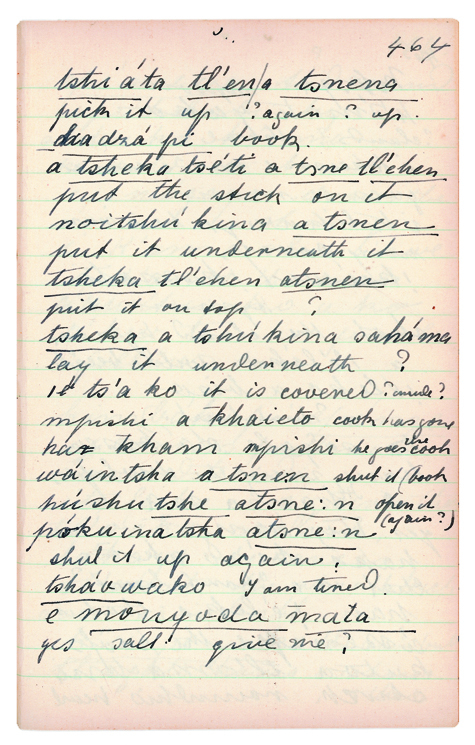 464
tshiáta tl'en/a tsnena
pick it up ? again ? up.
dzadzá pi book.
a tsheka tséti a tsne tl'ehen
put the stick on it
noitshú kina a tsnen
put it underneath it
tsheka tl'ehen atsnen
put it on top ?
tsheka a tshúkina saháma
lay it underneath ?
it ts'a ko it is covered ?
mpishi a khaieto cook has gone
ha kham mpishi he goes the cook
wáintsha atsnen shut it (book
húshu tshe atsne:n open it
(again?)
pókuinatska atsne:n
shut it up again.
tshávwako I am tired.
e monyoda mata
yes salt give me?